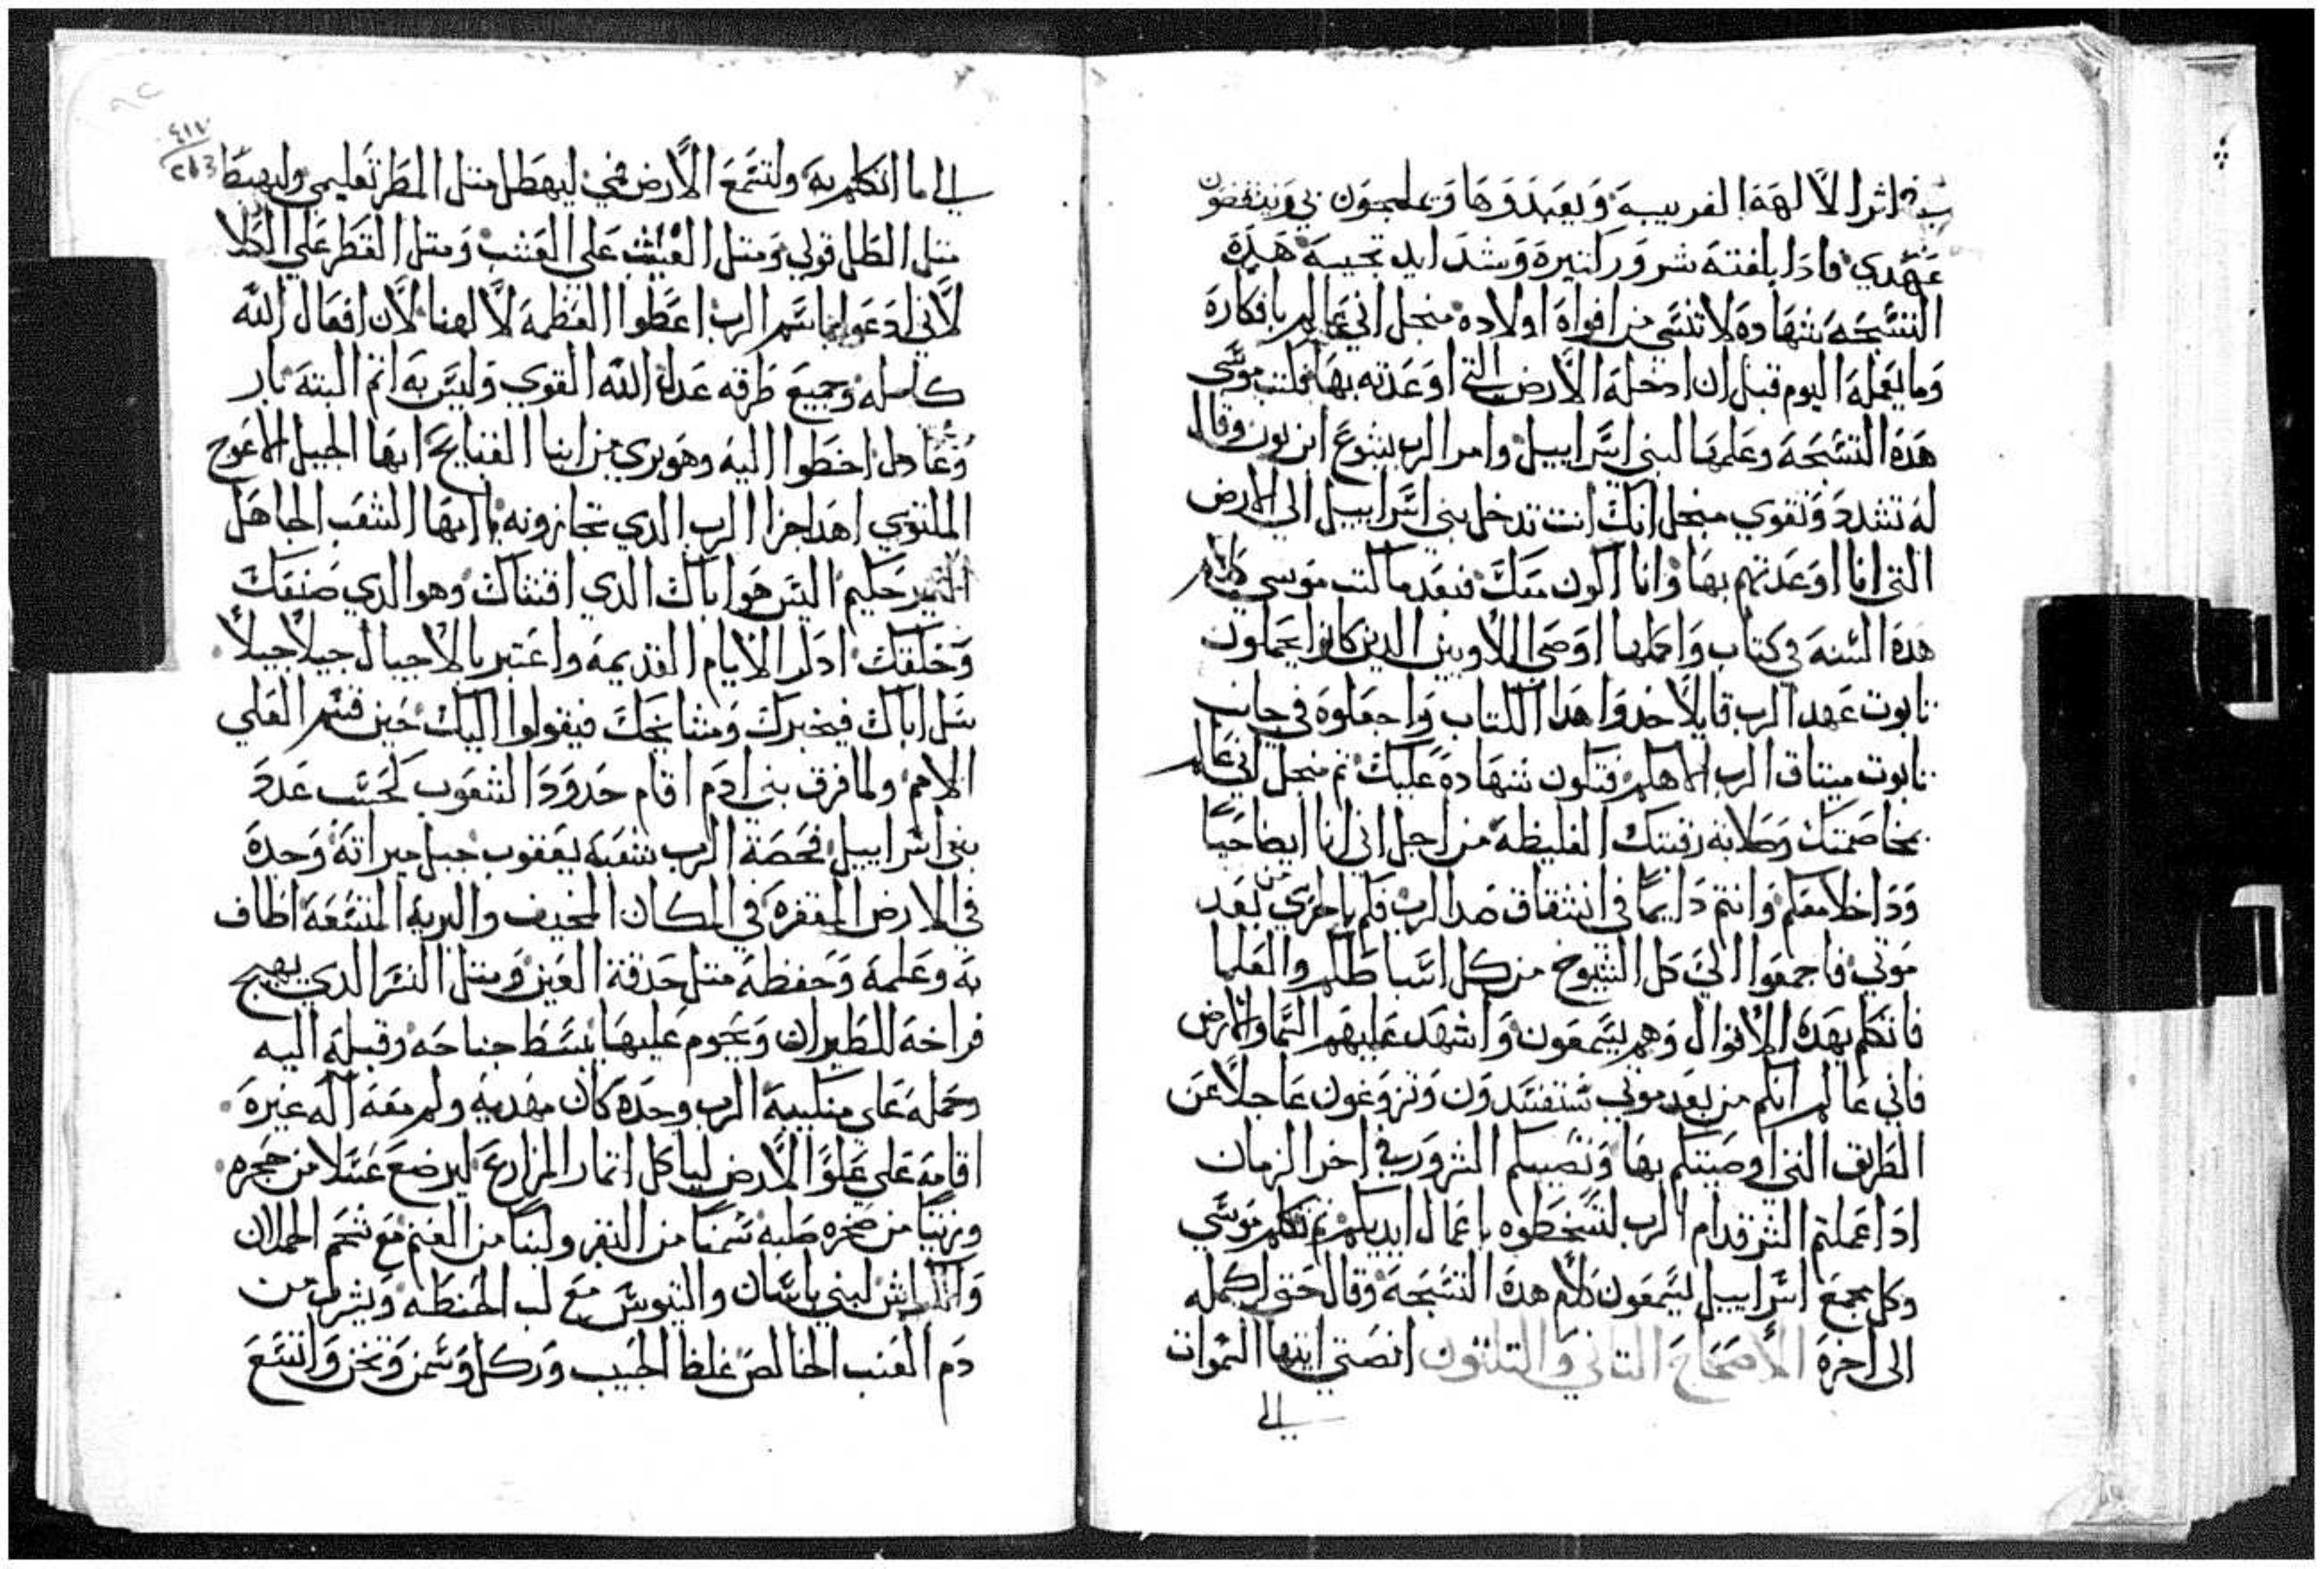 في اثر الالهة الغريبة ويعبدوها وعلي يجون بي وينقضون
عهدي فادا بلغته شرور كتيرة وشدايد تجيبه هده
التسبحة شهادة لا تنسي من افواه اولاده منجل اني عالم بافكاره
وما يعمله اليوم قبل ان ادخله الارض التي اوعدته بها فكتب موسي
هده التسبحة وعلمها لبني اسراييل وامر الرب يشوع ابن نون وقال
له تشدد وتقوي منجل انك انت تدخل بني اسراييل الي الارض
التي انا اوعدتهم بها وانا اكون معك فبعد ما كتب موسي كلام
هده السنه في كتاب واكملها اوصي اللاويين الدين كانوا يحملون
تابوت عهد الرب قايلا خدوا هدا الكتاب واجعلوه في جانب
تابوت ميتاق الرب الاهكم فتكون شهادة عليك تم منجل اني عالم
بمخاصمتك وصلابة رقبتك الغليظة من اجل اني انا ايضا حيا
وداخلا معكم وانتم دايما في انشقاق ضد الرب فكم باحري من بعد
موتي فاجمعوا الي كل الشيوخ من كل اسباطكم والعلما
فاتكلم بهده الاقوال وهم يسمعون واشهد عليهم السما والارض
فاني عالم انكم من بعد موتي ستفسدون وتزوغون عاجلا عن
الطريق التي اوصيتكم بها وتصيبكم الشرور في اخر الزمان
ادا عملتم الشر قدام الرب لتسخطوه باعمال ايديكم تم تكلم موسي
وكل مجمع اسراييل ليسمعون كلام هده التسبحة وقال حتي اكمله
الي اخره الاصحاح التاني والتلتون انصتي ايتها السموات
الي
٤١٧
263
الي ما اتكلم به ولتسمع الارض في ليهطل متل المطر تعليمي وليهبط
متل الطل قولي ومتل الغيث علي العشب ومتل القطر علي الكلا
لاني ادعوا باسم الرب اعطوا العظمة لالهنا لان افعال الله
كامله وجميع طرقه عدل الله القوي وليس به اتم البتة بار
وعادل اخطوا اليه وهو بري من ابنا القبايح ايها الجيل الاعوج
الملتوي اهدا جزا الرب الدي تجازونه يا ايها الشعب الجاهل
الغير حكيم اليس هو اباك الدي اقتناك وهو الدي صنعك
وخلقك ادكر الايام القديمة واعتبر بالاجيال جيلا جيلا
سل اباك فيخبرك ومشايخك فيقولوا اليك حين قسم العلي
الامم ولما فرق بني ادم اقام حدود الشعوب كحسب عدد
بني اسراييل فحصة الرب شعبه يعقوب حبل ميراته وحده
في الارض المقفرة في المكان المخيف والبرية المتسعة اطاف
به وعلمه وحفظه متل حدقة العين ومتل النسر الدي يهيج
فراخه للطيران ويحوم عليها بسط جناحه وقبله اليه
وحمله علي منكبيه الرب وحده كان مهديه ولم معه اله غيره
اقامه علي علو الارض لياكل اتمار المزارع ليرضع عسلا من حجره
وزيتا من صخره صلبه سمنا من البقر ولبنا من الغنم مع شحم الحملان
والكباش لبني باسان والتيوس مع لب الحنطه ويشرب من
دم العنب الخالص غلظ الحبيب وركل وسمن وتخن واتسع